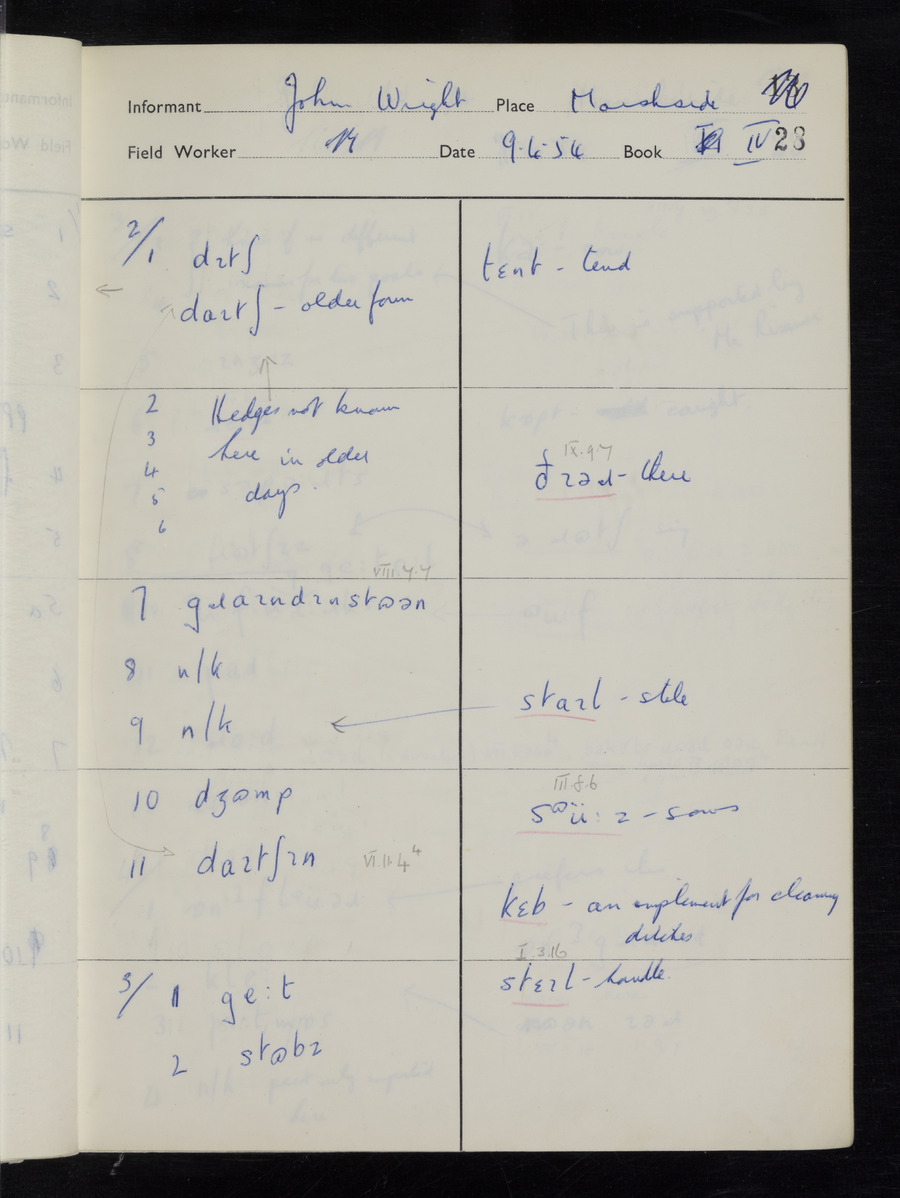 Informant John Wright Place Marshside
Field Worker Date 9.4.54 Book IV 23
2/1 dɪtʃ
daɪtʃ - older form
tɛnt - tend
2 Hedges not known
3 here in older
4 days.
5
6
IX.9.7
ðɪəɹ - there
VIII.7.7
7 gɹaɪndɪnstɷən
8 n/k
9 n/k
staɪl - stile
10 dʒɷmp
III.8.6
sɷü:z - sows
11 daɪtʃɪn VI.11.4
kɛb - an implement for cleaning
ditches
I.3.16
stɛɪl - handle.
3/1 ge:t
2 stɷbz